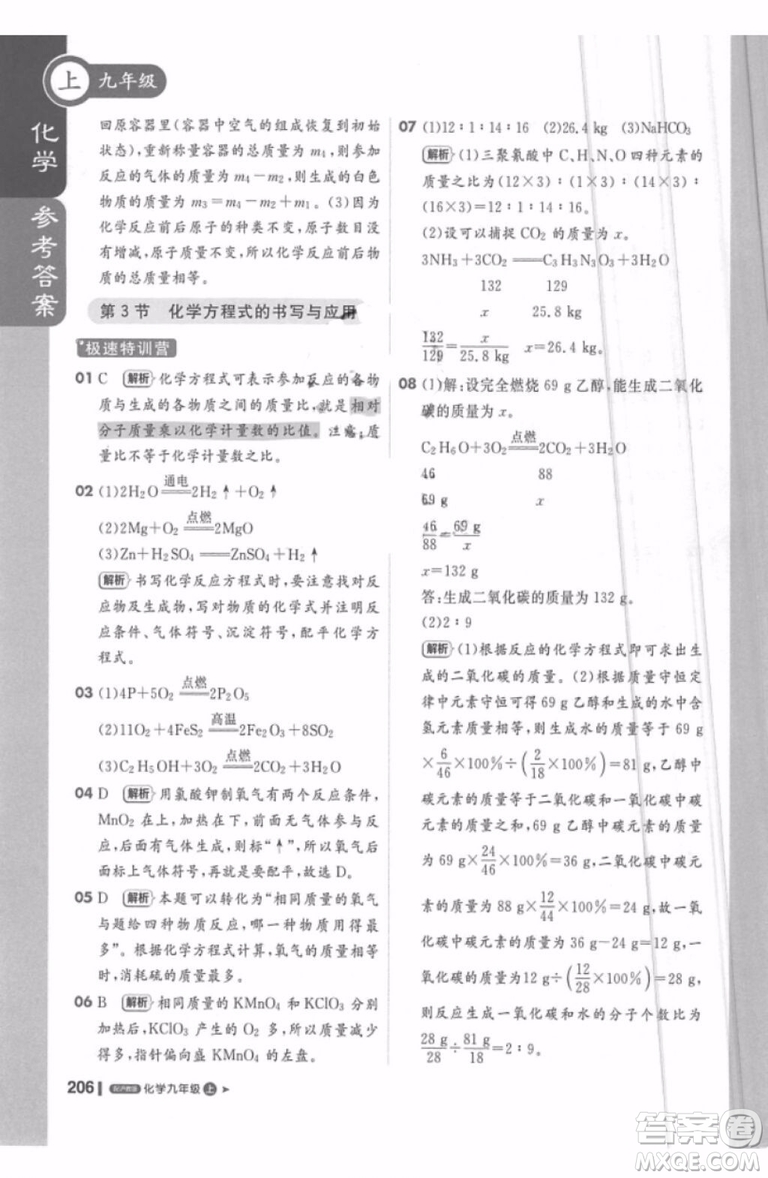 上 九年级
化学
参考答案
回原容器里(容器中空气的组成恢复到初始
状态),重新称量容器的总质量为 m₄,则参加
反应的气体的质量为 m₄-m₂,生成的白色
物质的质量为 m₄-m₂+m₁。(3)因为
化学反应前后原子的种类不变,原子数目没
有增减,原子质量不变,所以化学反应前后物
质的总质量相等。
第 3 节 化学方程式的书写与应用
极速特训营
01 C 解析 化学方程式可表示参加反应的各物
质与生成的各物质之间的质量比,就是相对
分子质量乘以化学计量数的比值。注意:质
量比不等于化学计量数之比。
02 (1)2H₂O 通电 2H₂↑+O₂↑
(2)2Mg+O₂ 点燃 2MgO
(3)Zn+H₂SO₄═ZnSO₄+H₂↑
解析 书写化学反应方程式时,要注意找对反
应物及生成物,写对物质的化学式并注明反
应条件、气体符号、沉淀符号、配平化学方
程式。
03 (1)4P+5O₂ 点燃 2P₂O₅
(2)11O₂+4FeS₂ 高温 2Fe₂O₃+8SO₂
(3)C₂H₅OH+3O₂ 点燃 2CO₂+3H₂O
04 D 解析 用氯酸钾制氧气有两个反应条件,
MnO₂ 在上,加热在下,固体反应物在受热
分解时生成的气体应标“↑”,所以氧气后
面标上气体符号,再就是要配平,故选 D。
05 D 解析 本题可以转化为“相同质量的氧气
与题给四种物质反应,哪一种物质消耗最
多”。根据化学方程式计算,氧气的质量相等
时,消耗硫的质量最多。
06 B 解析 相同质量的 KMnO₄ 和 KClO₃ 分别
加热后,KClO₃ 产生的 O₂ 多,质量减少
多,指针偏向盛 KMnO₄ 的左盘。
206 化学九年级 上
07 (1)12∶1∶14∶16 (2)26.4 kg (3)NaHCO₃
解析 (1)三聚氰酸中 C、H、N、O 四种元素的
质量之比为(12×3)∶(1×3)∶(14×3)∶
(16×3)=12∶1∶14∶16。
(2)设可以捕捉 CO₂ 的质量为 x。
3NH₃+3CO₂═C₃H₃N₃O₃+3H₂O
132 129
x 25.8 kg
132/129=x/25.8 kg x=26.4 kg
08 (1)解:设完全燃烧 69 g 乙醇,能生成二氧化
碳的质量为 x。
C₂H₆O+3O₂ 点燃 2CO₂+3H₂O
46 88
69 g x
46/88=69 g/x
x=132 g
答:生成二氧化碳的质量为 132 g。
(2)2∶9
解析 (1)根据反应的化学方程式即可求出生
成的二氧化碳的质量。(2)根据质量守恒定
律中元素守恒可得出乙醇和生成的水中含
氢元素的质量相等,则生成水的质量为 69 g
×6/46×100%÷(2/18×100%)=81 g,乙醇中
碳元素的质量等于二氧化碳和一氧化碳中碳
元素的质量和为 69 g×24/46×100%=36 g,二氧化碳中碳元
素的质量为 88 g×12/44×100%=24 g,故一
氧化碳中碳元素的质量为 36 g-24 g=12 g,
所以一氧化碳的质量为 12 g÷(12/28×100%)=28 g,
则反应生成的一氧化碳和水的分子个数之比为
28 g/28÷81 g/18=2∶9。
答案圈
MXQE.COM